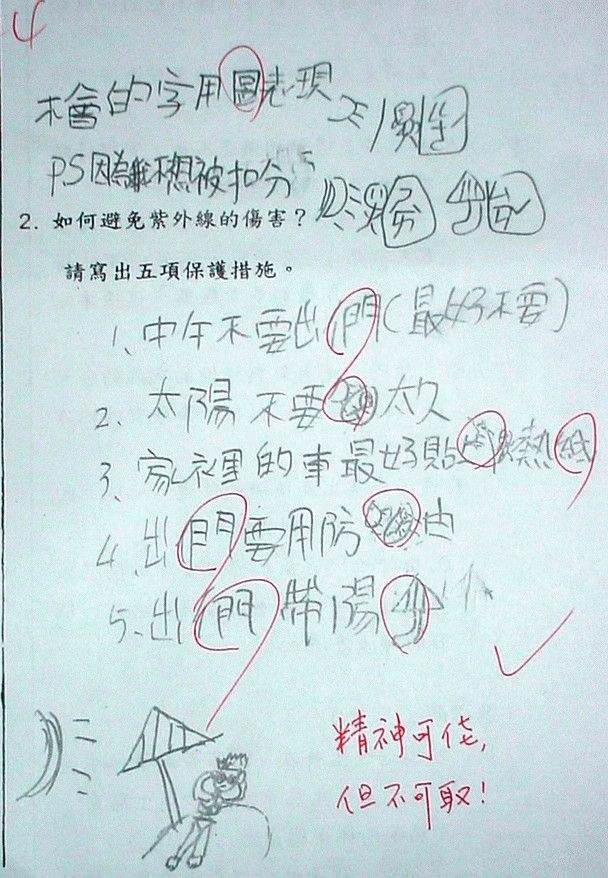 不會的字用圖表現
PS因為不想被扣分
2. 如何避免紫外線的傷害？
請寫出五項保護措施。
1、中午不要出門(最好不要)
2、太陽不要太久
3、家裡的車最好貼熱紙
4、出門要用防由
5、出門帶陽
精神可佳,
但不可取!